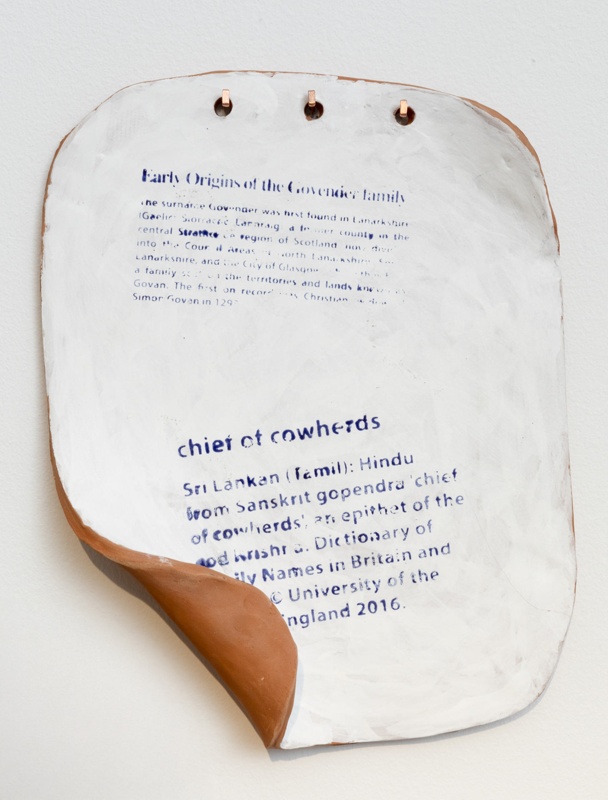 Early Origins of the Govender family
The surname Govender was first found in Lanarkshire
(Gaelic: Siorrachd Lannraig) a former county in the
central Strathclyde region of Scotland, now divided
into the Council Areas of North Lanarkshire,
Lanarkshire, and the City of Glasgow
a family seat the territories and lands known
Govan. The first on record Christian
Simon Govan in 129
chief of cowherds
Sri Lankan (Tamil): Hindu
from Sanskrit gopendra 'chief
of cowherds', an epithet of the
god Krishna. Dictionary of
ily Names in Britain and
© University of the
ngland 2016.